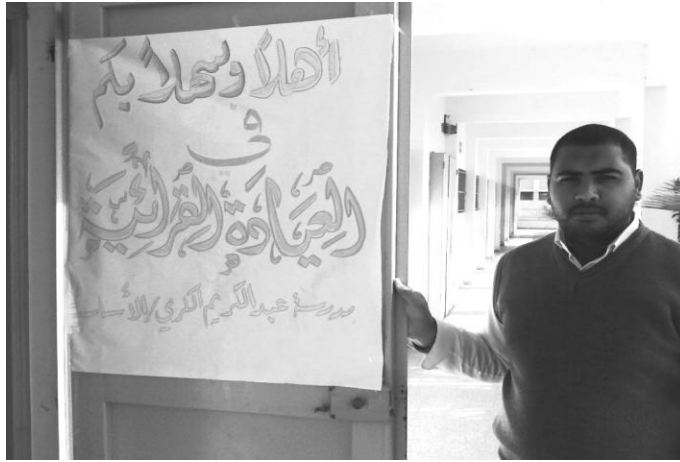 أهلاً وسهلاً بكم
في
العِيَادَةِ القِرَائِيَّةِ
مدرسة عبد الكريم الكرمي/الأساسية